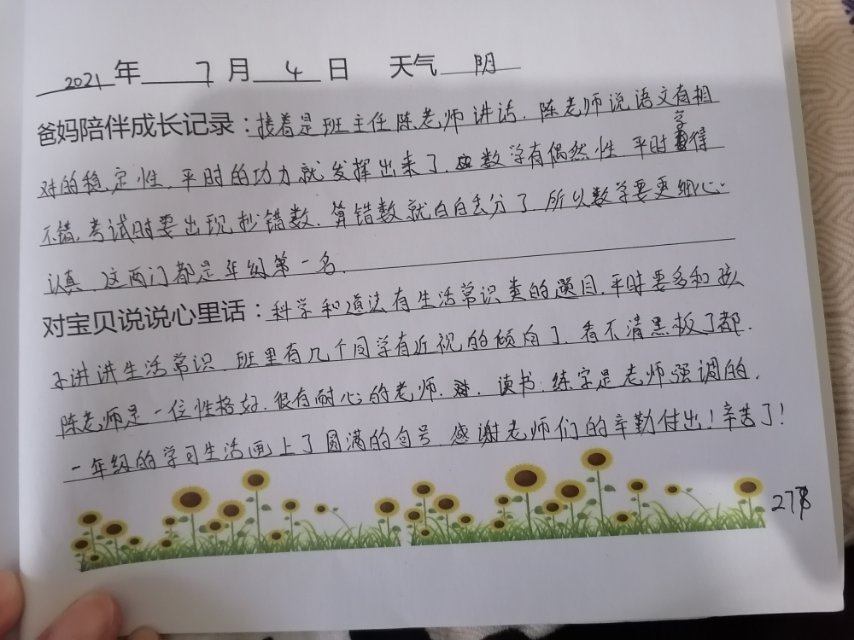 2021年 7 月 4 日 天气 阴
爸妈陪伴成长记录：接着是班主任陈老师讲话。陈老师说语文有相
对的稳定性，平时的功力就发挥出来了，数学有偶然性，平时学得
不错，考试时要出现抄错数，算错数就白白丢分了，所以数学要更细心
认真，这两门都是年级第一名。
对宝贝说说心里话：科学和道法有生活常识类的题目，平时要多和孩
子讲讲生活常识，班里有几个同学有近视的倾向了，看不清黑板了都。
陈老师是一位性格好，很有耐心的老师，读书，练字是老师强调的。
一年级的学习生活画上了圆满的句号，感谢老师们的辛勤付出！辛苦了！
278